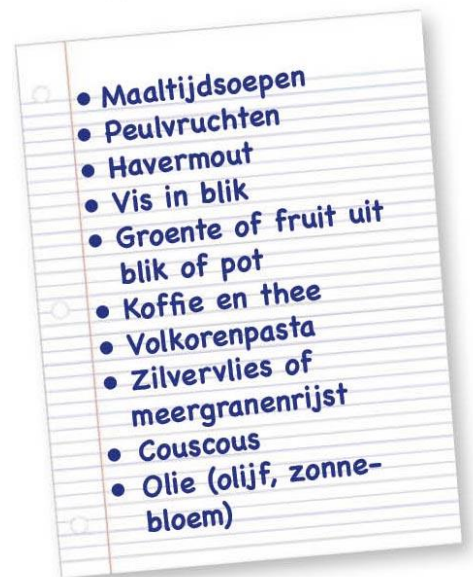 • Maaltijdsoepen
• Peulvruchten
• Havermout
• Vis in blik
• Groente of fruit uit
blik of pot
• Koffie en thee
• Volkorenpasta
• Zilvervlies of
meergranenrijst
• Couscous
• Olie (olijf, zonne-
bloem)